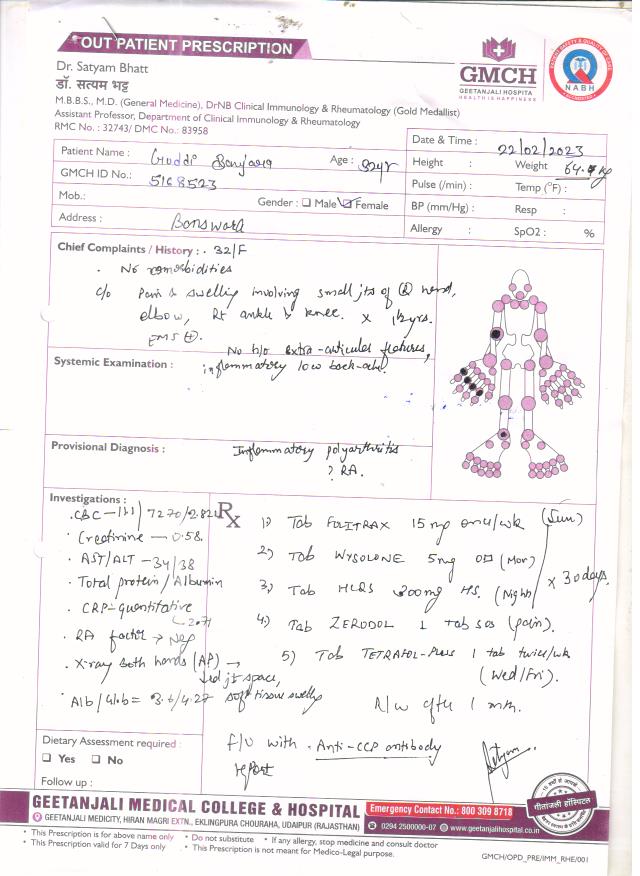 OUT PATIENT PRESCRIPTION
Dr. Satyam Bhatt
डॉ. सत्यम भट्ट
M.B.B.S., M.D. (General Medicine), DrNB Clinical Immunology & Rheumatology (Gold Medallist)
Assistant Professor, Department of Clinical Immunology & Rheumatology
RMC No. : 32743/ DMC No.: 83958
GMCH
GEETANJALI HOSPITAL
HEALTH IS HAPPINESS
NABH
Date & Time : 22/02/2023
Patient Name : Guddi Banjara Age : 32yr
Height : Weight 64. kg
GMCH ID No.: 5168523
Pulse (/min) : Temp (°F) :
Mob.: Gender : Male Female
BP (mm/Hg) : Resp :
Address : Banswara
Allergy : SpO2 : %
Chief Complaints / History : . 32/F
. No comorbidities
c/o Pain & swelling involving small jts of hand,
elbow, Rt ankle & knee. x 1½yrs.
EMS (+).
No h/o extra-articular features,
Systemic Examination : inflammatory low back-ache.
Provisional Diagnosis : Inflammatory polyarthritis
? RA.
Investigations :
. CBC – 11.1/7270/2.82L
. Creatinine — 0.58
. AST/ALT – 34/38
. Total protein / Albumin
. CRP-quantitative
2.71
. RA factor → Neg
. X-ray both hands (AP) →
↓ed jt space,
soft tissue swelly
. Alb/Glob = 3.6/4.27
Rx
1) Tab FOLITRAX 15 mg once/wk (Sun)
2) Tab WYSOLONE 5mg OD (Mor)
3) Tab HCQS 200mg HS. (Night)
x 30days.
4) Tab ZERODOL 1 tab sos (pain).
5) Tab TETRAFOL-Plus 1 tab twice/wk
(Wed/Fri).
R/w after 1 mth.
f/u with . Anti-CCP antibody
report
Dietary Assessment required :
Yes No
Follow up :
GEETANJALI MEDICAL COLLEGE & HOSPITAL
Emergency Contact No.: 800 309 8718
GEETANJALI MEDICITY, HIRAN MAGRI EXTN., EKLINGPURA CHOURAHA, UDAIPUR (RAJASTHAN)
0294 2500000-07 www.geetanjalihospital.co.in
गीतांजली हॉस्पिटल
* This Prescription is for above name only * Do not substitute * If any allergy, stop medicine and consult doctor
* This Prescription valid for 7 Days only * This Prescription is not meant for Medico-Legal purpose.
GMCH/OPD_PRE/IMM_RHE/001